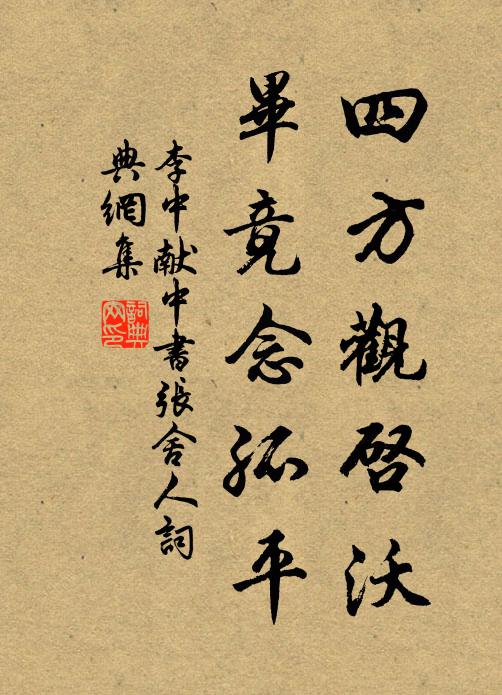 四方觀啓沃
畢竟念孤平
李中献中書張舍人詞
典網集
詞典網印